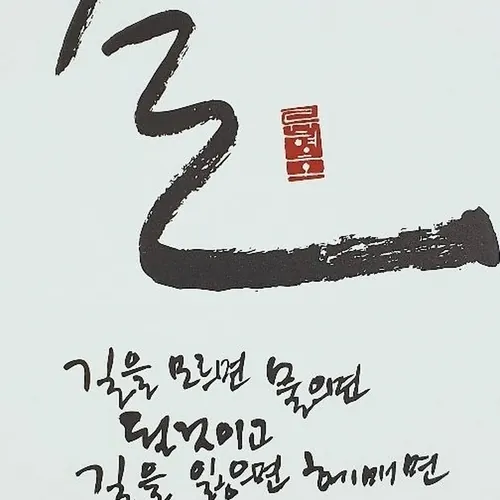 길을 모르면 물으면
될것이고
길을 잃으면 헤매면